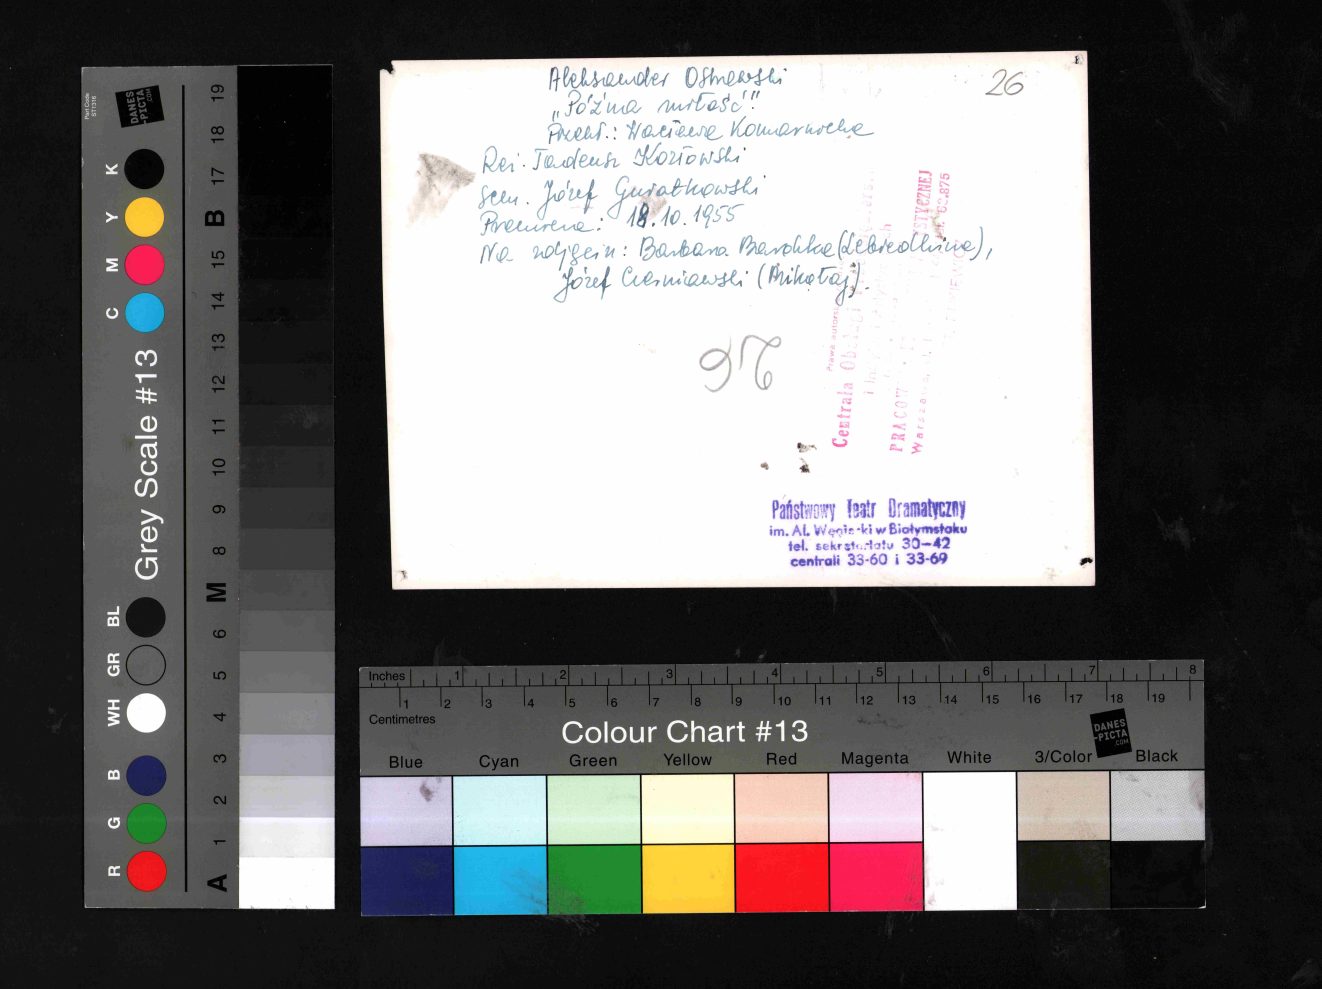 Aleksander Ostrowski
„Późna miłość"
Przekł.: Wacława Komarnicka
Reż. Tadeusz Kozłowski
Scen. Józef
Premiera: 18.10.1955
Na zdjęciu: Barbara Barska (Lebiedkina),
Józef Czerniawski (Mikołaj).
26
26
Centrala
PRACOW STYCZNEJ
Warszawa
Prawa autorsk
Państwowy Teatr Dramatyczny
im. Al. Węgierki w Białymstoku
tel. sekretariatu 30-42
centrali 33-60 i 33-69
Part Code
ST1316
DANES
-PICTA
.COM
Grey Scale #13
R G B WH GR BL C M Y K
A 1 2 3 4 5 6 M 8 9 10 11 12 13 14 15 B 17 18 19
Inches 1 2 3 4 5 6 7 8
Centimetres 1 2 3 4 5 6 7 8 9 10 11 12 13 14 15 16 17 18 19
Colour Chart #13
DANES
-PICTA
.COM
Blue Cyan Green Yellow Red Magenta White 3/Color Black